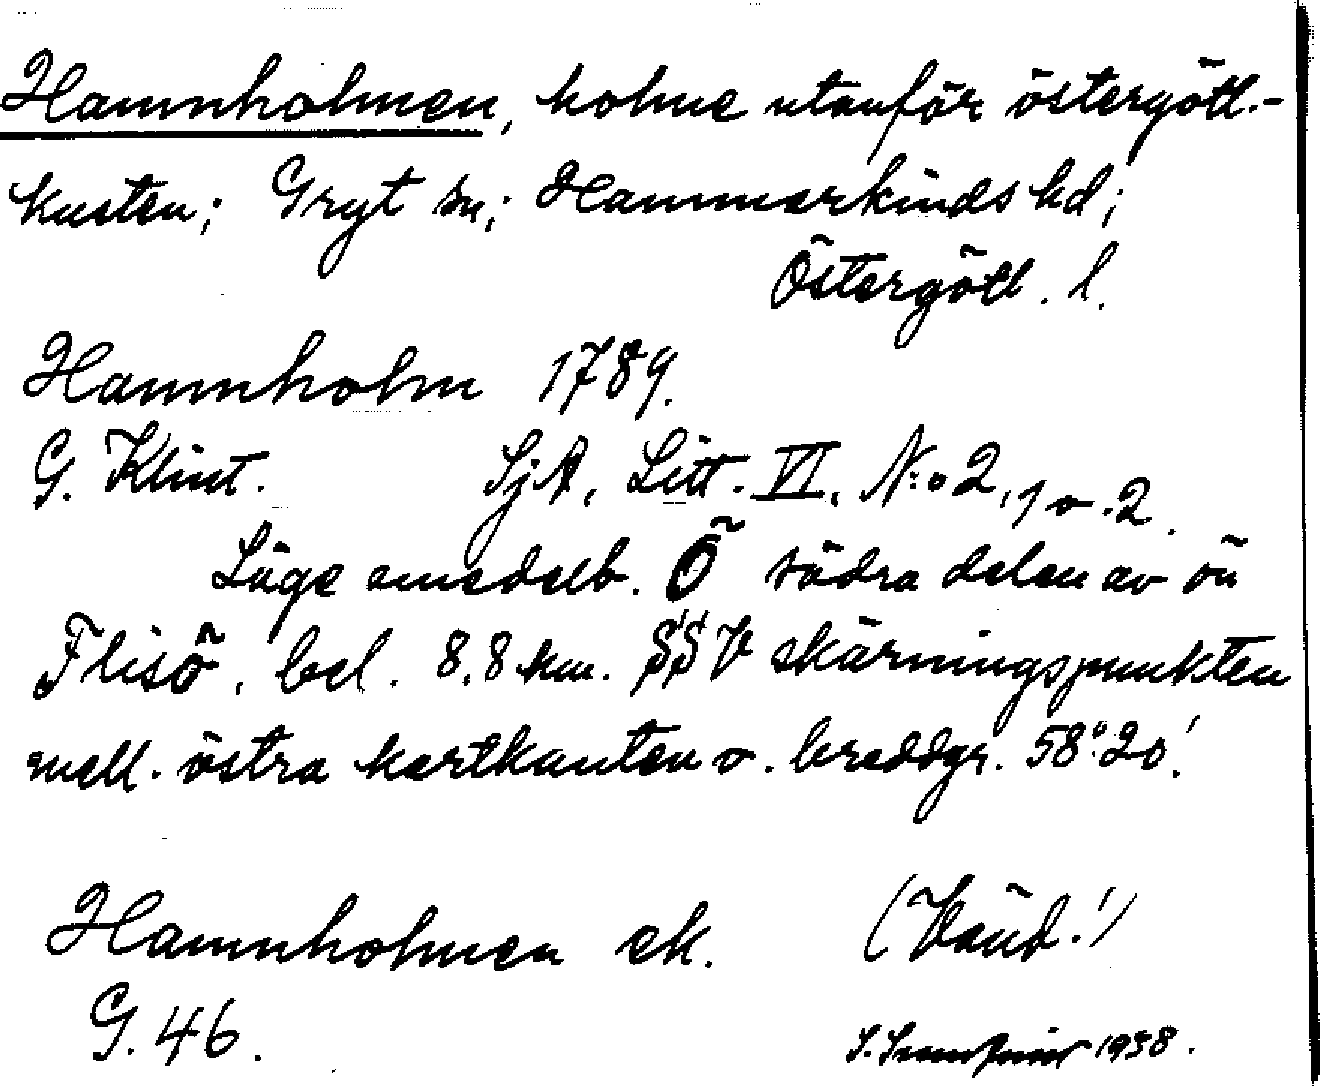 Hamnholmen, holme utanför östergötl.-
kusten; Gryt sn; Hammarkinds hd;
Östergötl. l.
Hamnholm 1789.
G. Klint. SjA, Litt. VI, N:o 2, 1 o. 2.
Läge omedelb. Ö södra delen av ön
Flisö, bel. 8,8 km. SSV skärningspunkten
mell. östra kartkanten o. breddgr. 58°20'.
Hamnholmen ek. (Vänd!)
G. 46.
1938.